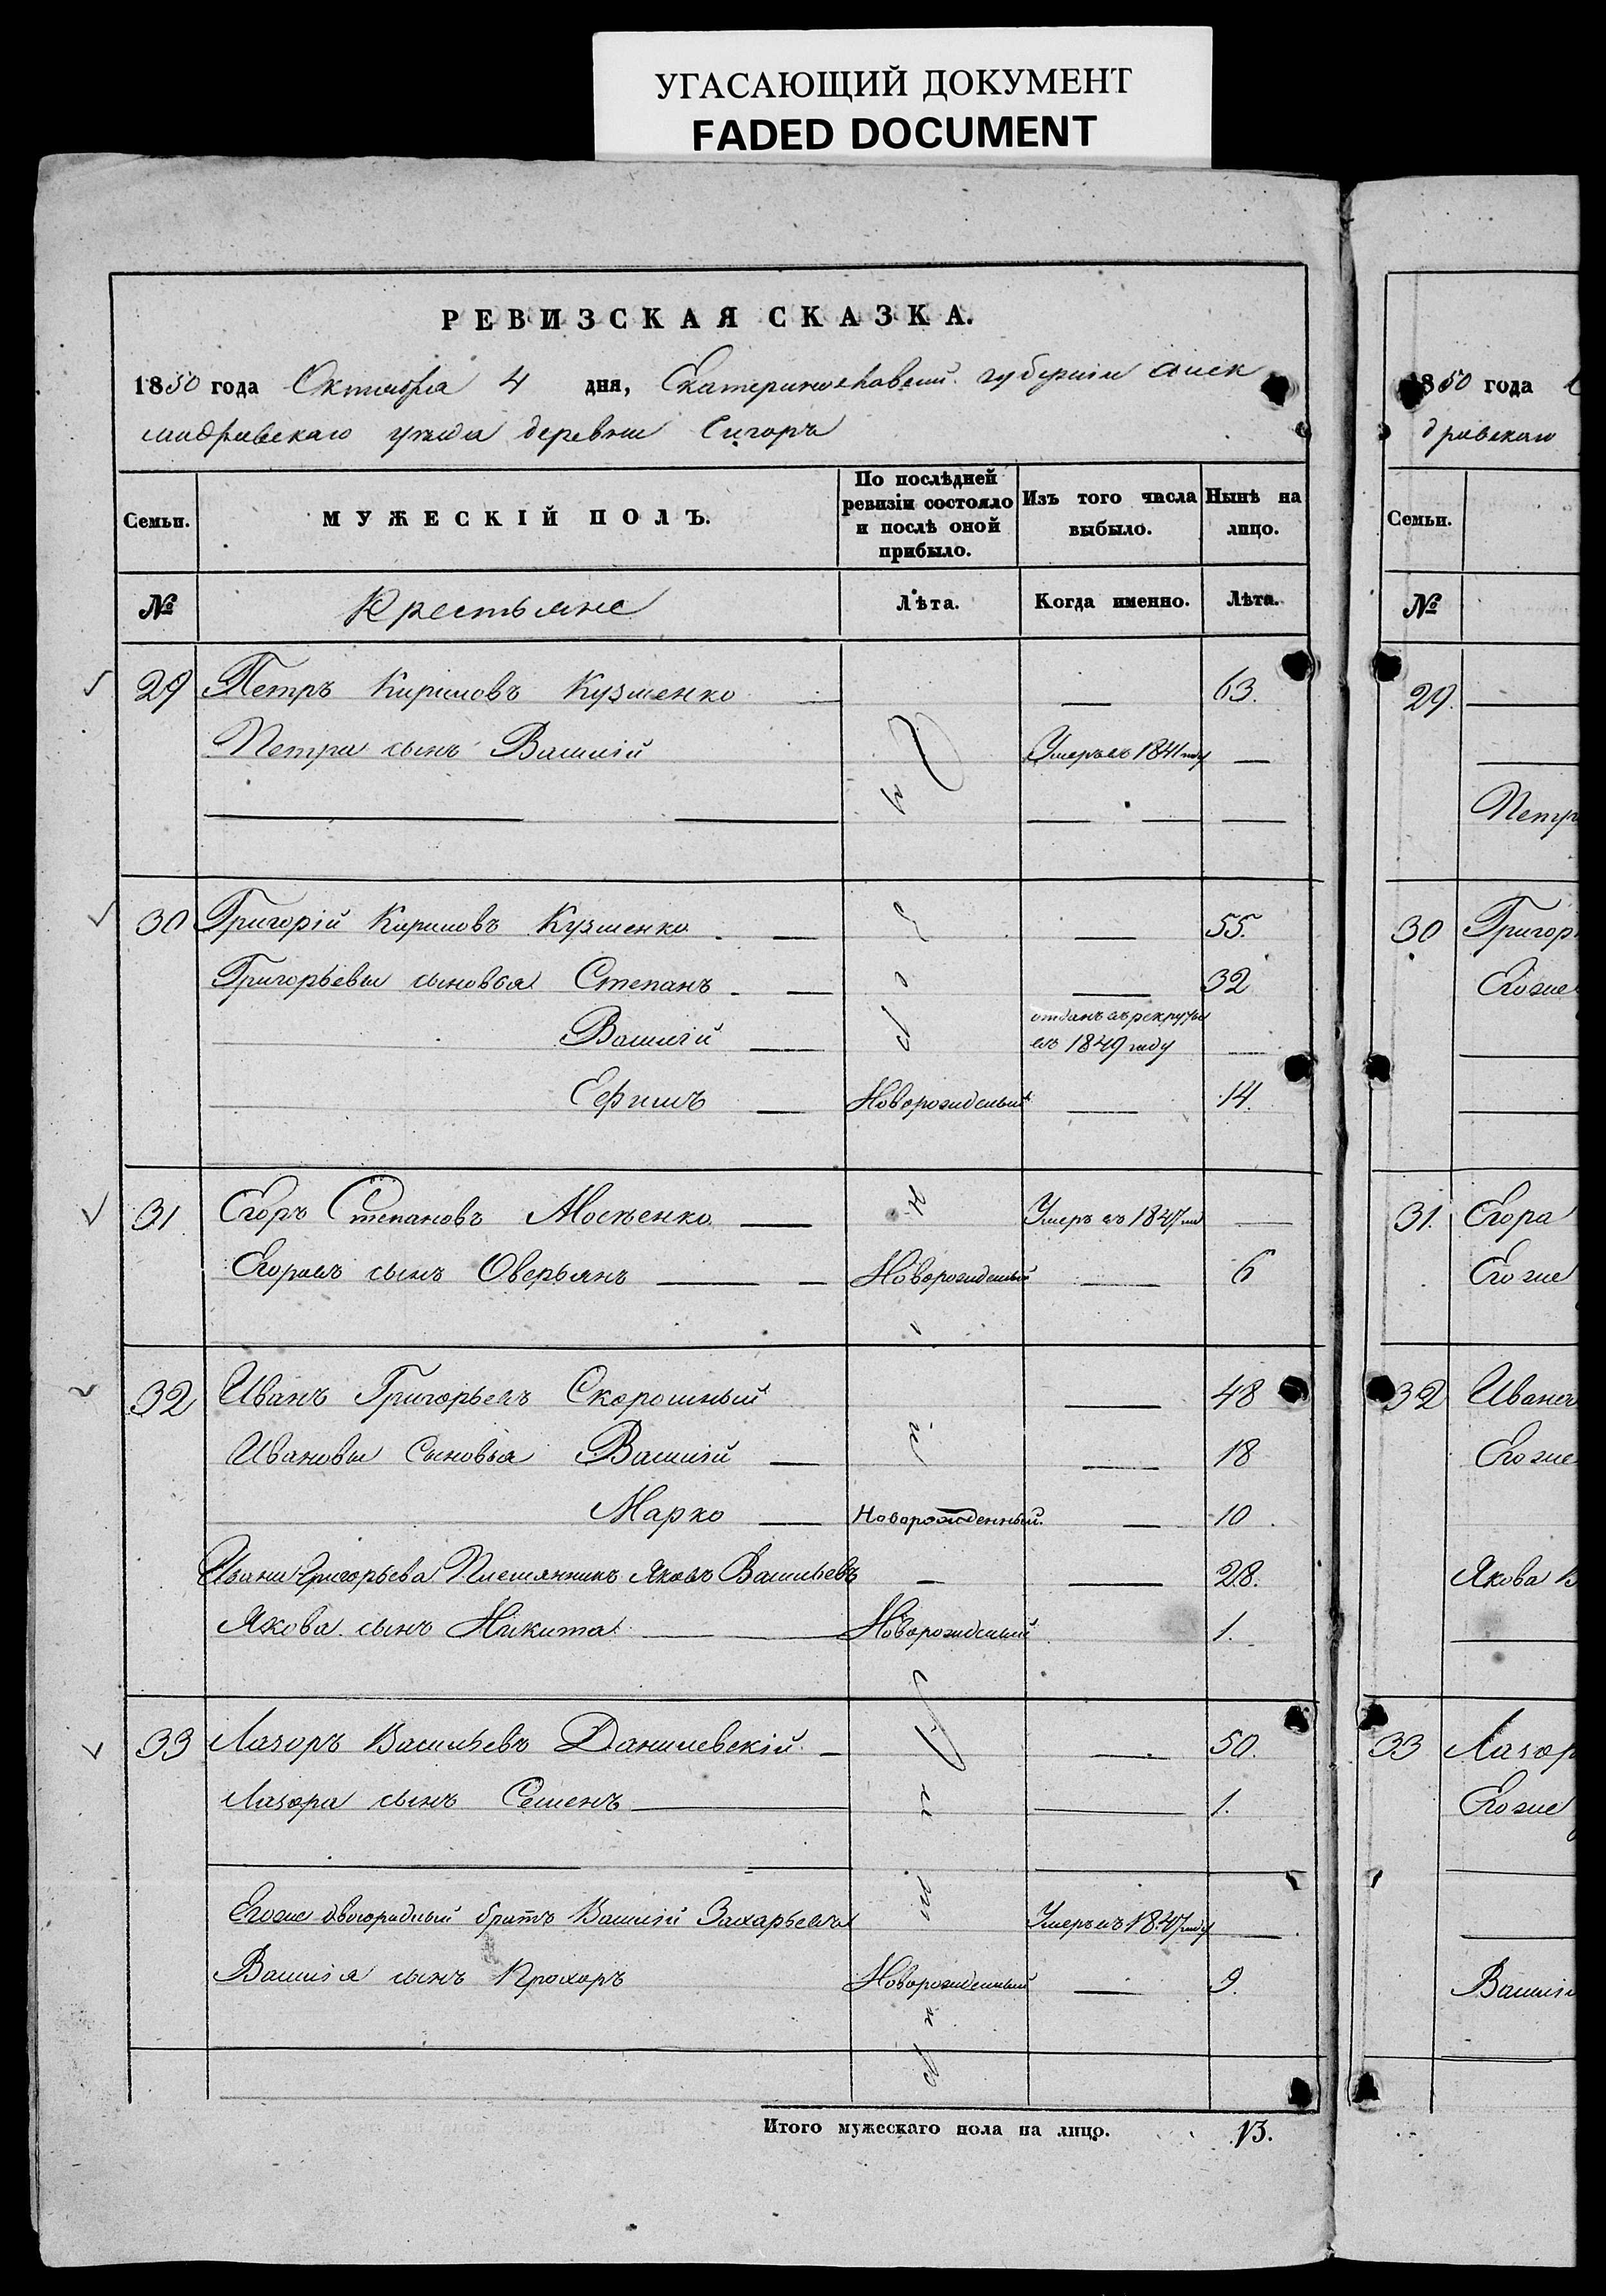 УГАСАЮЩИЙ ДОКУМЕНТ
FADED DOCUMENT
РЕВИЗСКАЯ СКАЗКА.
1850 года Октября 4 дня, Екатеринославской губернии Алек
сандровскаго уезда деревни
Семьи. МУЖЕСКІЙ ПОЛЪ. По послѣдней ревизіи состояло и послѣ оной прибыло. Изъ того числа выбыло. Нынѣ на лицо.
№ Крестьяне Лѣта. Когда именно. Лѣта.
29 Петръ Кириловъ Кузменко — — 63.
Петра сынъ Василій Умеръ въ 1841 году —
30 Григорій Кириловъ Кузменко — — 55.
Григорьевы сыновья Степанъ — — 32
Василій — отданъ въ рекруты въ 1849 году —
Ефимъ — Новорожденный — 14.
31 Егоръ Степановъ Мосѣенко — Умеръ въ 1847 —
Егоровъ сынъ Оверьянъ — Новорожденный — 6
32 Иванъ Григорьевъ Скорошный — 48
Ивановы Сыновья Василій — — 18
Марко — Новорожденный. — 10
Ивана Григорьева Племянникъ Яковъ Васильевъ — — 28.
Якова сынъ Никита — Новорожденный 1.
33 Лазоръ Васильевъ Данилевскій — — 50.
Лазора сынъ Семенъ — — 1.
Егоже двоюродный братъ Василій Захарьевъ Умеръ въ 1847 году —
Василія сынъ Прохоръ Новорожденный — 9.
Итого мужескаго пола на лицо. 13.
1850 года
дровскаго
Семьи.
№
29.
Петр
30 Григор
Егоже
31. Егора
Егоже
32 Ивана
Егоже
Якова В
33 Лазор
Егоже
Васили